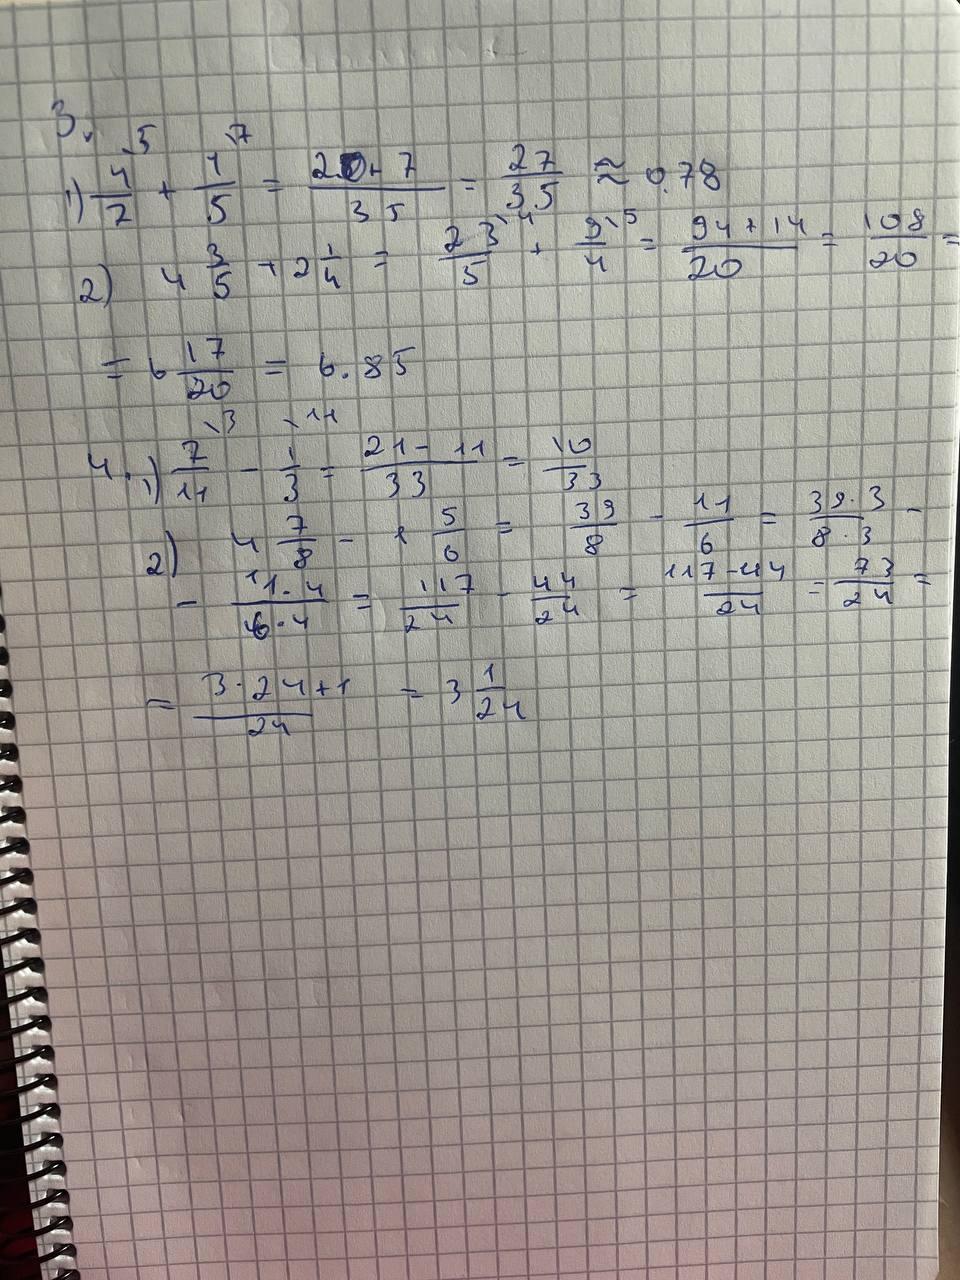 3.
1) 4/7 \5 + 1/5 \7 = 20+7/35 = 27/35 ≈ 0.78
2) 4 3/5 + 2 1/4 = 23/5 \4 + 9/4 \5 = 94+14/20 = 108/20 =
= 6 17/20 = 6.85
4. 1) 7/11 \3 - 1/3 \11 = 21-11/33 = 10/33
2) 4 7/8 - 1 5/6 = 39/8 - 11/6 = 39·3/8·3 -
- 11·4/6·4 = 117/24 - 44/24 = 117-44/24 = 73/24 =
= 3·24+1/24 = 3 1/24